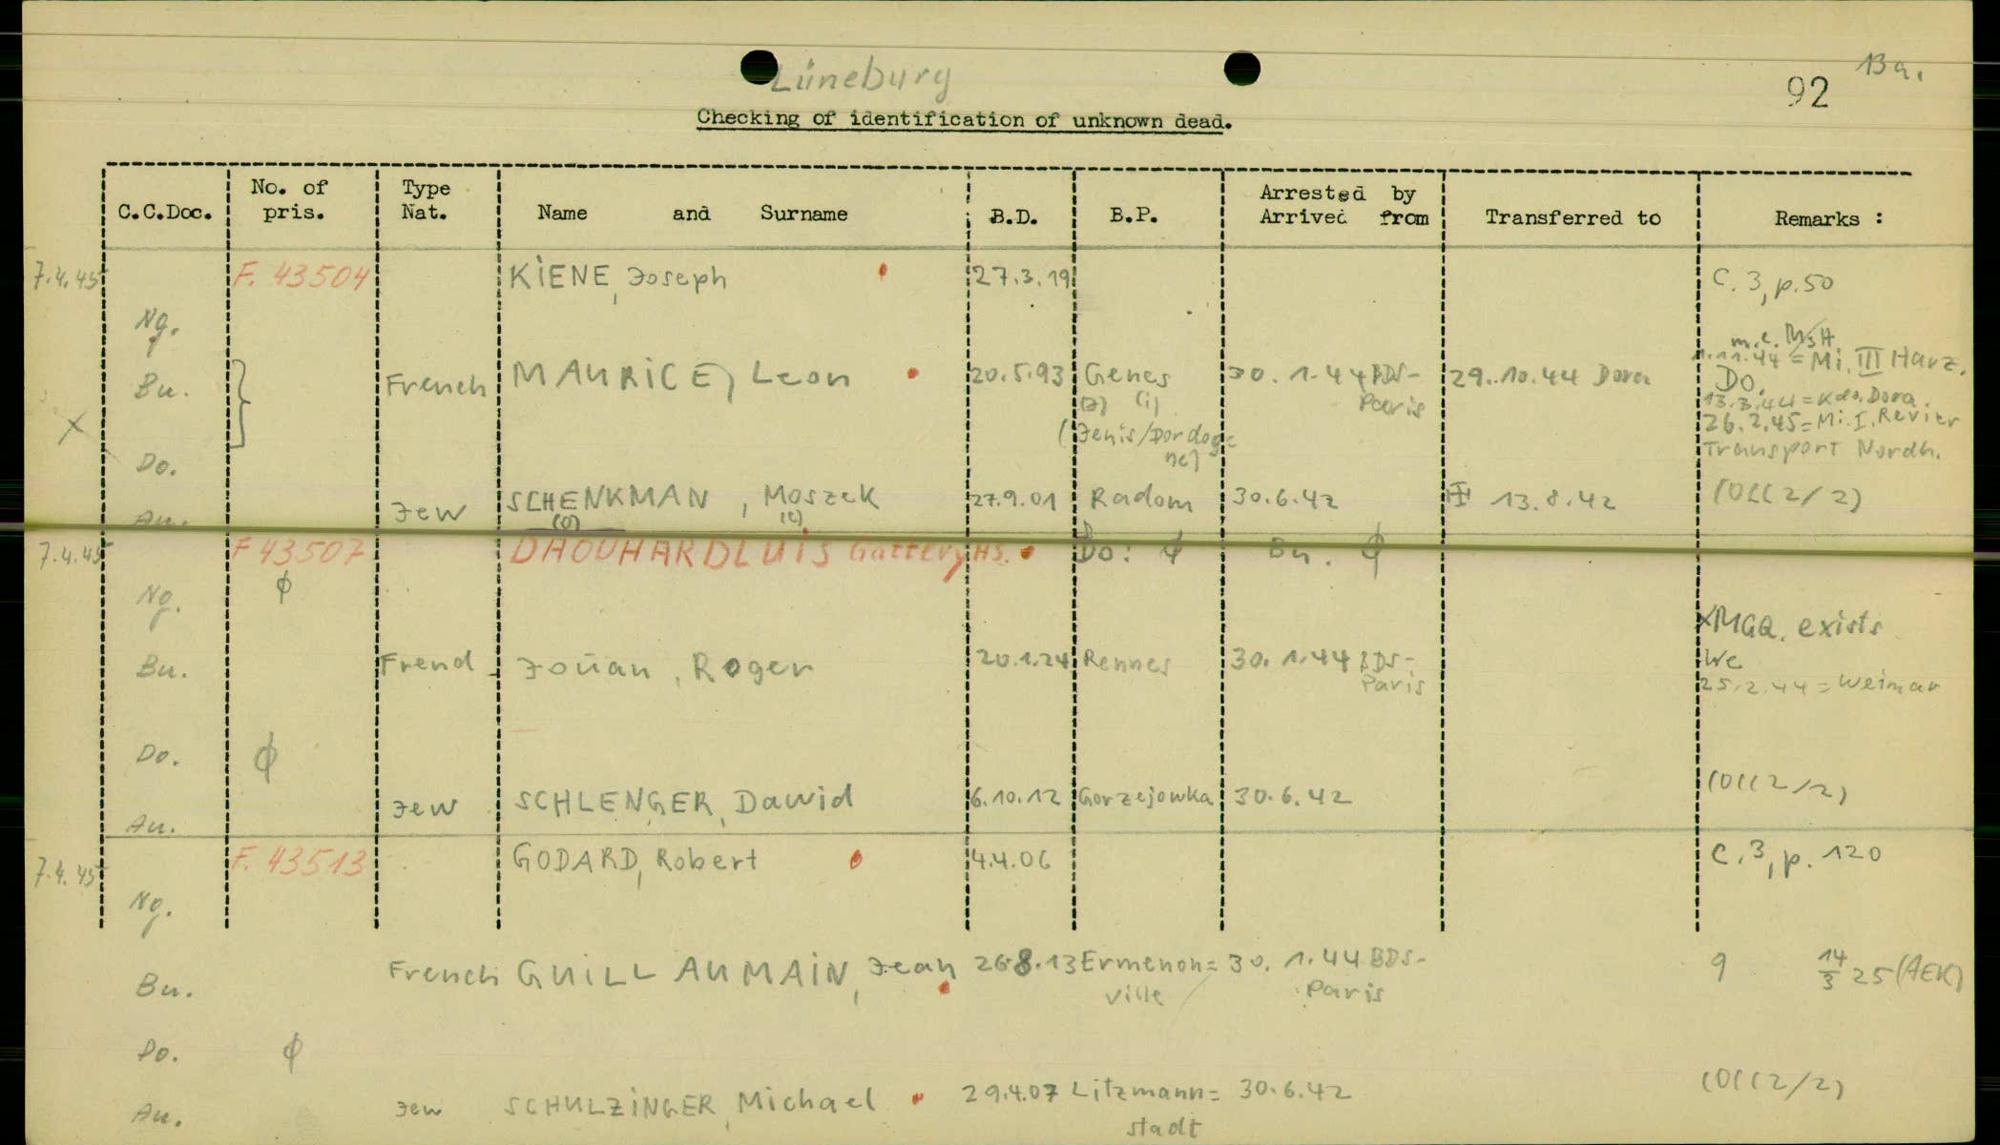 Lüneburg
Ba.
92
Checking of identification of unknown dead.
C.C.Doc. No. of pris. Type Nat. Name and Surname B.D. B.P. Arrested by Arrived from Transferred to Remarks :
7.4.45 F. 43504 KIENE, Joseph 27.3.19 C. 3, p.50
Ng.
Bu. French MAURICE, Leon 20.5.93 Genes 30.1.44 BDS- Paris 29.10.44 Dora
(i)
(Jenis/Dordogne)
1.11.44 = Mi. III Harz.
Do.
13.3.44 = Kdo. Dora.
26.2.45 = Mi. I. Revier
Transport Nordh.
X
Do.
Au. Jew SCHENKMAN, Moszek 27.9.01 Radom 30.6.42 13.8.42 (OCC 2/2)
(o) (e)
7.4.45 F 43507 DAOUHARDLUIS Gattery HS. Do: ϕ Bu. ϕ
Ng. ϕ
XMGQ. exists
Bu. Frend Joüan, Roger 20.1.24 Rennes 30.1.44 BDS- Paris We
25.2.44 = Weimar
Do. ϕ
Au. Jew SCHLENGER, Dawid 6.10.12 Gorzejowka 30.6.42 (OCC 2/2)
7.4.45 F. 43513 GODARD, Robert 4.4.06 C. 3, p. 120
Ng.
Bu. French GUILLAUMAIN, Jean 26.8.13 Ermenon= ville 30.1.44 BDS- Paris 9 14/3 25 (AEK)
Do. ϕ
Au. Jew SCHULZINGER, Michael 29.4.07 Litzmann= stadt 30.6.42 (OCC 2/2)